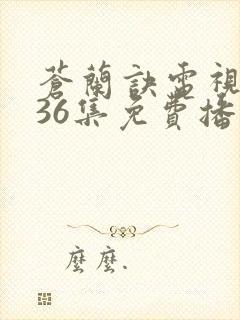 蒼蘭訣電視
36集免費播
麼麼.